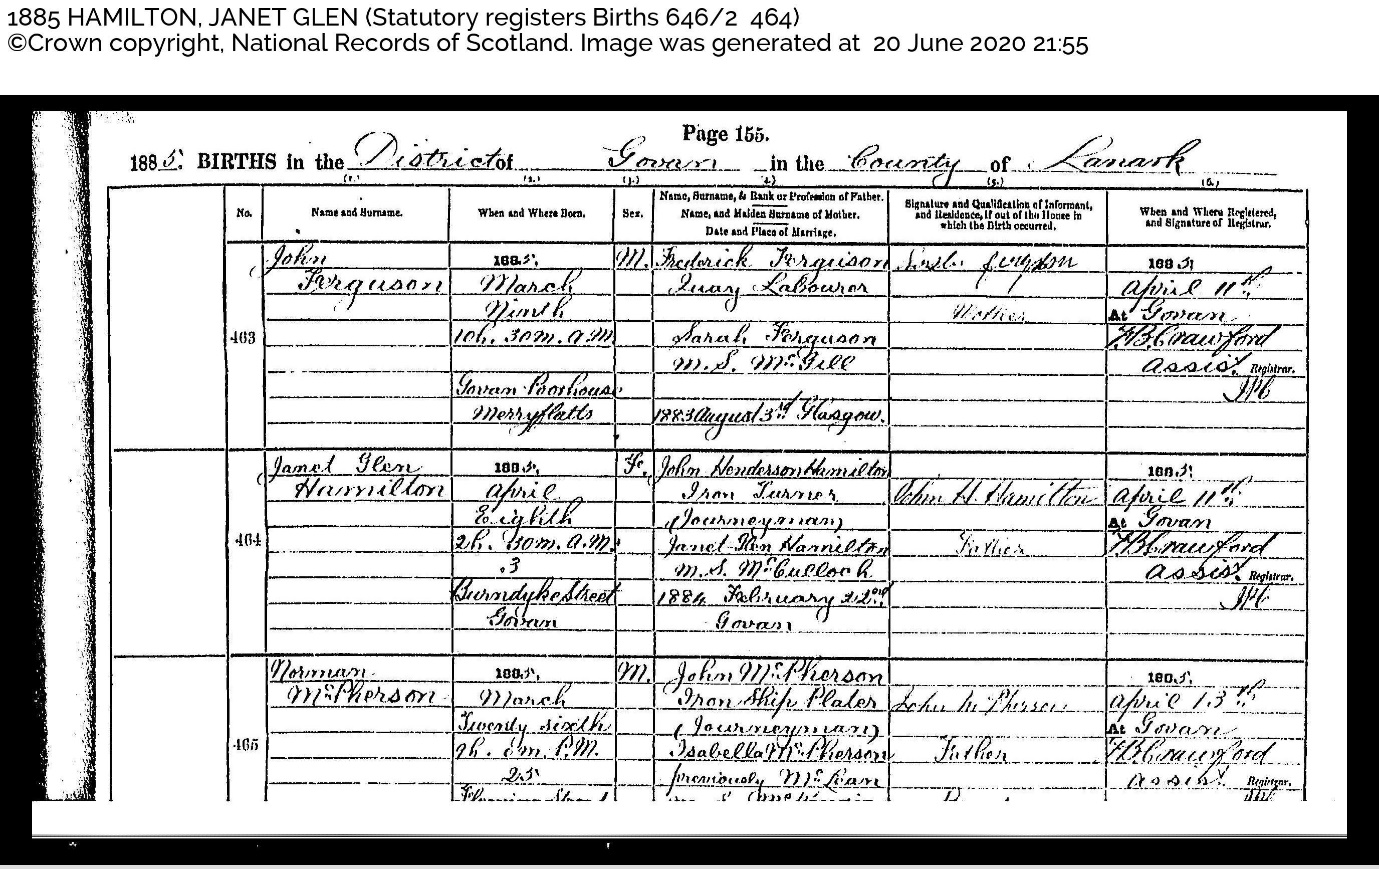 1885 HAMILTON, JANET GLEN (Statutory registers Births 646/2 464)
©Crown copyright, National Records of Scotland. Image was generated at 20 June 2020 21:55
Page 155.
1885. BIRTHS in the District of Govan in the County of Lanark
(1.) (2.) (3.) (4.) (5.) (6.)
No. Name and Surname. When and Where Born. Sex. Name, Surname, & Rank or Profession of Father. Name, and Maiden Surname of Mother. Date and Place of Marriage. Signature and Qualification of Informant, and Residence, if out of the House in which the Birth occurred. When and Where Registered, and Signature of Registrar.
463
John
Ferguson
1885,
March
Ninth
10h. 30m. A.M.
Govan Poorhouse
Merryflatts
M.
Frederick Ferguson
Quay Labourer
Sarah Ferguson
M.S. McGill
1883 August 3rd Glasgow.
Mother
1885,
April 11th
At Govan
Crawford
Assist. Registrar.
464
Janet Glen
Hamilton
1885,
April
Eighth
2h. 30m. A.M.
3
Burndyke Street
Govan
F.
John Henderson Hamilton
Iron Turner
(Journeyman)
Janet Glen Hamilton
M.S. McCulloch
1884 February 22nd
Govan
John H. Hamilton
Father
1885,
April 11th
At Govan
Crawford
Assist. Registrar.
465
Norman
McPherson
1885,
March
Twenty sixth
9h. P.M.
25
M.
John McPherson
Iron Ship Plater
(Journeyman)
Isabella McPherson
previously McLean
John McPherson
Father
1885,
April 13th
At Govan
Crawford
Assist. Registrar.